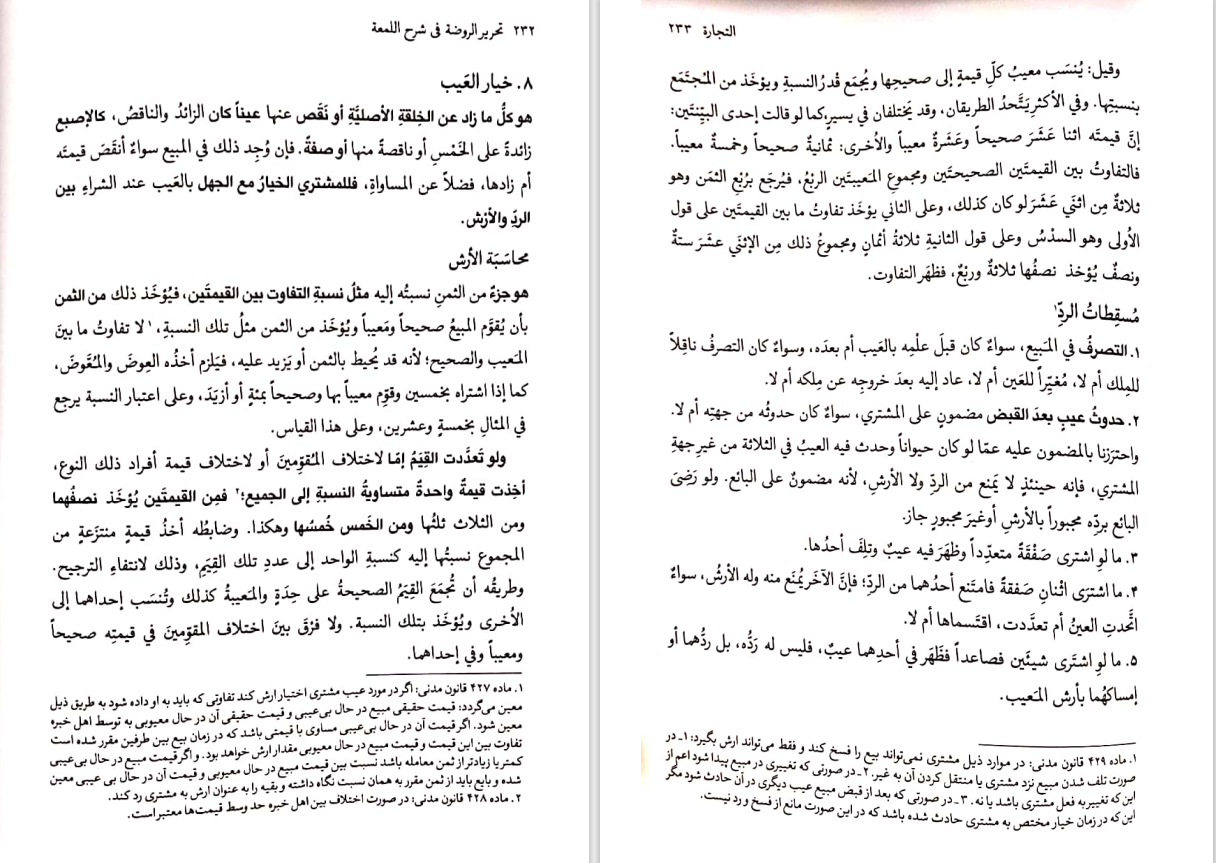 ٢٣٢ تحرير الروضة فى شرح اللمعة
٨. خيار العَيب
هو كلُّ ما زاد عن الخِلقةِ الأصليَّةِ أو نَقَص عنها عيناً كان الزائدُ والناقصُ، كالإصبع
زائدةً على الخَمْسِ أو ناقصةً منها أو صفةً. فإن وُجِد ذلك في المبيع سواءٌ أنقَصَ قيمتَه
أم زادها، فضلاً عن المساواةِ، فللمشتري الخيارُ مع الجهل بالعَيب عند الشراءِ بين
الردِّ والأرْشِ.
محاسَبَة الأرش
هو جزءٌ من الثمنِ نسبتُه إليه مثلُ نسبةِ التفاوت بين القيمتَين، فيُؤخَذ ذلك من الثمن
بأن يُقوَّم المبيعُ صحيحاً ومَعيباً ويُؤخَذ من الثمن مثلُ تلك النسبةِ،١ لا تفاوتُ ما بينَ
المَعيب والصحيح؛ لأنه قد يُحيط بالثمن أو يَزيد عليه، فيَلزم أخذُه العِوضَ والمُعَّوضَ،
كما إذا اشتراه بخمسين وقوِّم معيباً بها وصحيحاً بمئةٍ أو أزيَدَ، وعلى اعتبار النسبة يرجع
في المثالِ بخمسةٍ وعشرين، وعلى هذا القياس.
ولو تَعدَّدت القِيَمُ إمّا لاختلاف المُقوِّمينَ أو لاختلاف قيمة أفراد ذلك النوع،
أخِذت قيمةٌ واحدةٌ متساويةُ النسبةِ إلى الجميع؛٢ فمِن القيمتَين يُؤخَذ نصفُهما
ومن الثلاث ثلثُها ومن الخَمس خُمسُها وهكذا. وضابطُه أخذُ قيمةٍ منتزَعةٍ من
المجموع نسبتُها إليه كنسبةِ الواحد إلى عددِ تلك القِيَمِ، وذلك لانتفاءِ الترجيح.
وطريقُه أن تُجمَعَ القِيَمُ الصحيحةُ على حِدَةٍ والمَعيبةُ كذلك وتُنسَب إحداهما إلى
الأخرى ويُؤخَذ بتلك النسبة. ولا فرْقَ بينَ اختلاف المقوِّمينَ في قيمتِه صحيحاً
ومعيباً وفي إحداهما.
١. ماده ۴٢٧ قانون مدنى: اگر در مورد عيب مشترى اختيار ارش كند تفاوتى كه بايد به او داده شود به طريق ذيل
معين مى‌گردد: قيمت حقيقى مبيع در حال بى‌عيبى و قيمت حقيقى آن در حال معيوبى به توسط اهل خبره
معين شود. اگر قيمت آن در حال بى‌عيبى مساوى با قيمتى باشد كه در زمان بيع بين طرفين مقرر شده است
تفاوت بين اين قيمت و قيمت مبيع در حال معيوبى مقدار ارش خواهد بود. و اگر قيمت مبيع در حال بى‌عيبى
كمتر يا زيادتر از ثمن معامله باشد نسبت بين قيمت مبيع در حال معيوبى و قيمت آن در حال بى عيبى معين
شده و بايع بايد از ثمن مقرر به همان نسبت نگاه داشته و بقيه را به عنوان ارش به مشترى رد كند.
٢. ماده ۴٢٨ قانون مدنى: در صورت اختلاف بين اهل خبره حد وسط قيمت‌ها معتبر است.
التجارة ٢٣٣
وقيل: يُنسَب معيبُ كلِّ قيمةٍ إلى صحيحِها ويُجمَع قدرُ النسبةِ ويؤخَذ من المُجتَمَع
بنسبتِها. وفي الأكثرِ يَتَّحدُ الطريقان، وقد يَختلفان في يسيرٍ، كما لو قالت إحدى البيِّنتَين:
إنَّ قيمتَه اثنا عَشَرَ صحيحاً وعَشَرةٌ معيباً والأخرى: ثمانيةٌ صحيحاً وخمسةٌ معيباً.
فالتفاوتُ بين القيمتَين الصحيحتَين ومجموعِ المَعيبتَين الربْعُ، فيُرجَع برُبْعِ الثمَن وهو
ثلاثةٌ مِن اثنَي عَشَرَ لو كان كذلك، وعلى الثاني يؤخَذ تفاوت ما بين القيمتَين على قول
الأولى وهو السدْسُ وعلى قول الثانيةِ ثلاثةُ أثمانٍ ومجموعُ ذلك مِن الإثنَي عشَرَ ستةٌ
ونصفٌ يُؤخذ نصفُها ثلاثةٌ وربْعٌ، فظهَر التفاوت.
مُسقِطاتُ الردِّ١
١. التصرفُ في المَبيع، سواءٌ كان قبلَ علْمِه بالعَيب أم بعدَه، وسواءٌ كان التصرفُ ناقلاً
للمِلك أم لا، مُغيِّراً للعَين أم لا، عاد إليه بعدَ خروجِه عن مِلكه أم لا.
٢. حدوثُ عيبٍ بعدَ القبض مضمونٍ على المشتري، سواءٌ كان حدوثُه من جهتِه أم لا.
واحترَزنا بالمضمون عليه عمّا لو كان حيواناً وحدث فيه العيبُ في الثلاثة من غيرِ جهةِ
المشتري، فإنه حينئذٍ لا يَمنع من الردِّ ولا الأرشِ، لأنه مضمونٌ على البائع. ولو رَضِيَ
البائع بردِّه مجبوراً بالأرشِ أو غيرَ مجبورٍ جاز.
٣. ما لوِ اشترى صَفْقَةً متعدِّداً وظَهَرَ فيه عيبٌ وتلِفَ أحدُها.
٤. ما اشترَى اثنانِ صَفقةً فامتَنع أحدُهما من الردِّ؛ فإنَّ الآخَرَ يُمنَع منه وله الأرشُ، سواءٌ
اتَّحدتِ العينُ أم تعدَّدت، اقتَسماها أم لا.
٥. ما لوِ اشتَرى شيئَين فصاعداً فظَهَر في أحدِهما عيبٌ، فليس له رَدُّه، بل ردُّهما أو
إمساكُهُما بأرش المَعيب.
١. ماده ۴٢٩ قانون مدنى: در موارد ذيل مشترى نمى‌تواند بيع را فسخ كند و فقط مى‌تواند ارش بگيرد: ١- در
صورت تلف شدن مبيع نزد مشترى يا منتقل كردن آن به غير. ٢- در صورتى كه تغييرى در مبيع پيدا شود اعم از
اين كه تغيير به فعل مشترى باشد يا نه. ٣- در صورتى كه بعد از قبض مبيع عيب ديگرى در آن حادث شود مگر
اين كه در زمان خيار مختص به مشترى حادث شده باشد كه در اين صورت مانع از فسخ و رد نيست.